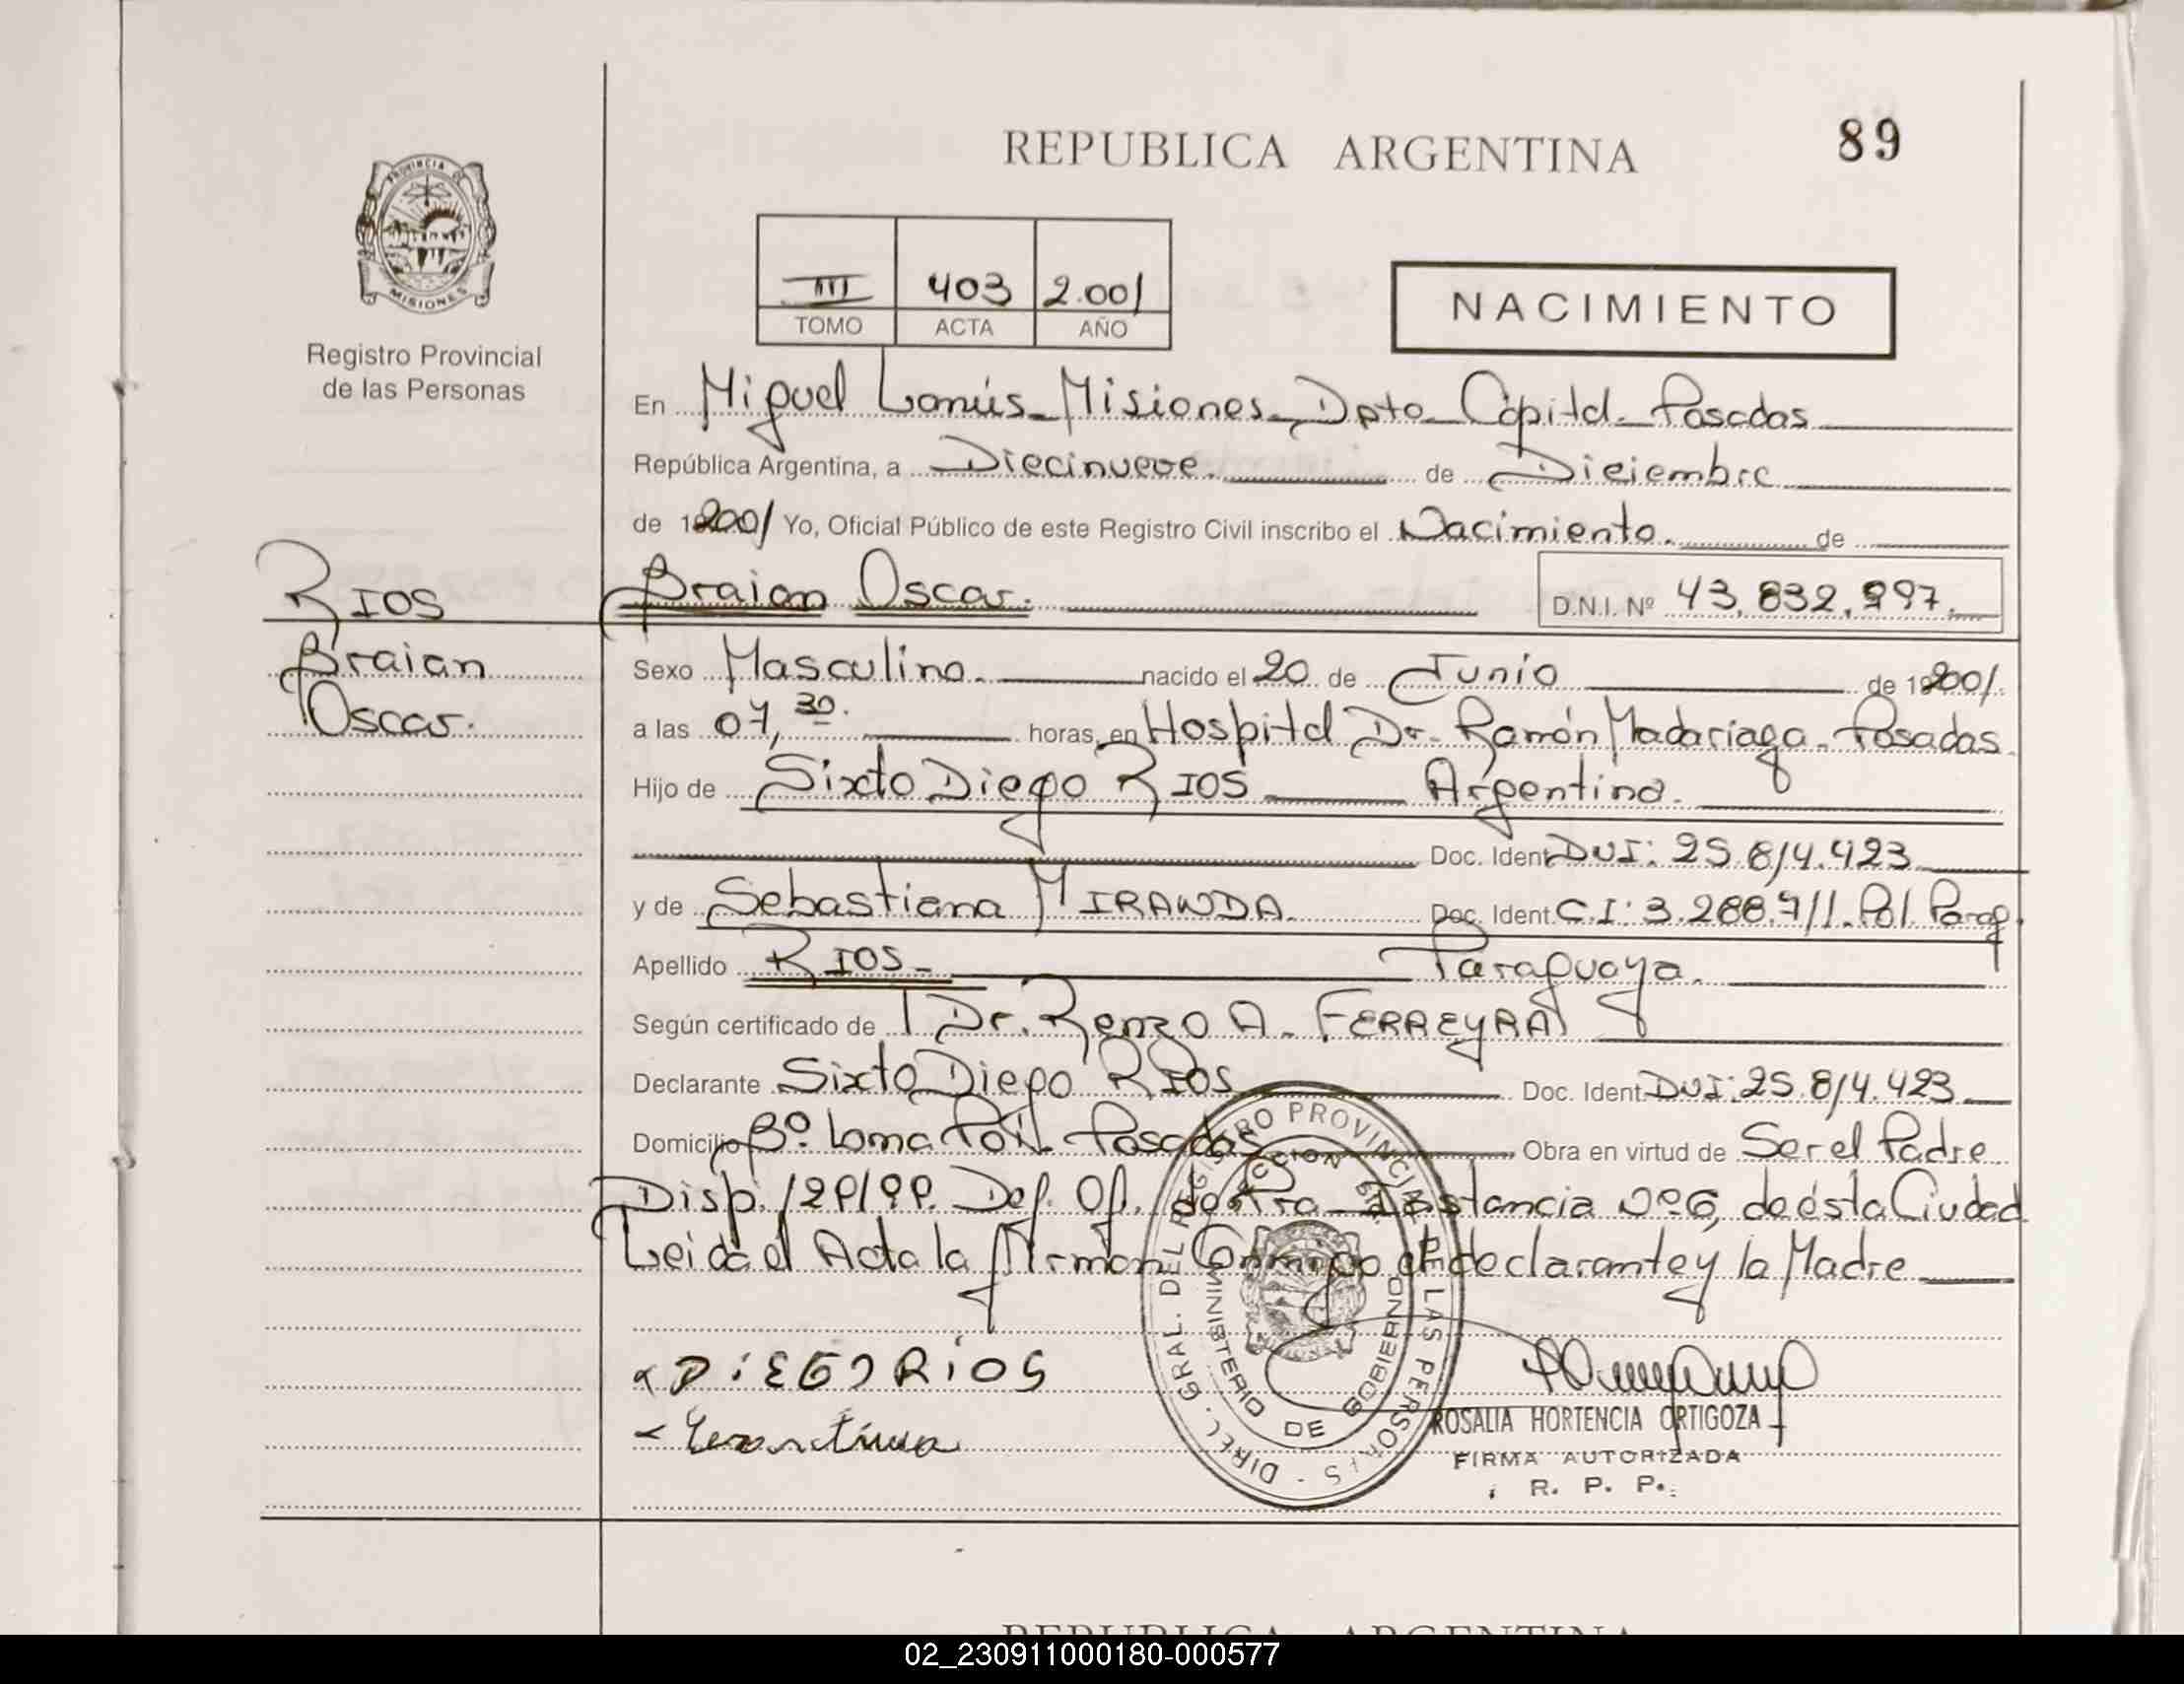 REPUBLICA ARGENTINA
89
PROVINCIA DE
MISIONES
Registro Provincial
de las Personas
III 403 2.001
TOMO ACTA AÑO
NACIMIENTO
En Miguel Lanús - Misiones - Dpto - Capital - Posadas
República Argentina, a Diecinueve. de Diciembre
de 2001 Yo, Oficial Público de este Registro Civil inscribo el Nacimiento. de
RIOS
Braian Oscar. D.N.I. Nº 43.832.997.
Braian
Oscar.
Sexo Masculino. nacido el 20 de Junio de 2001.
a las 07,30. horas, en Hospital Dr. Ramón Madariaga - Posadas
Hijo de Sixto Diego RIOS Argentino.
Doc. Ident DNI: 25.814.423
y de Sebastiana MIRANDA. Doc. Ident. C.I: 3.288.711 - Pol. Parag.
Apellido RIOS - Paraguaya.
Según certificado de Dr. Renzo A. FERREYRA
Declarante Sixto Diego RIOS Doc. Ident. DNI: 25.814.423
Domicilio Bº Loma Posadas Obra en virtud de Ser el Padre
Disp. 129/99. Def. Of. de Pra Instancia Nº 6, de ésta Ciudad
Leida el Acta la firman Conmigo el declarante y la Madre
DIEGO RIOS
DIREC. GRAL. DEL REGISTRO PROVINCIAL DE LAS PERSONAS
MINISTERIO DE GOBIERNO
ROSALIA HORTENCIA ORTIGOZA
FIRMA AUTORIZADA
R. P. P.
REPUBLICA ARGENTINA
02_230911000180-000577